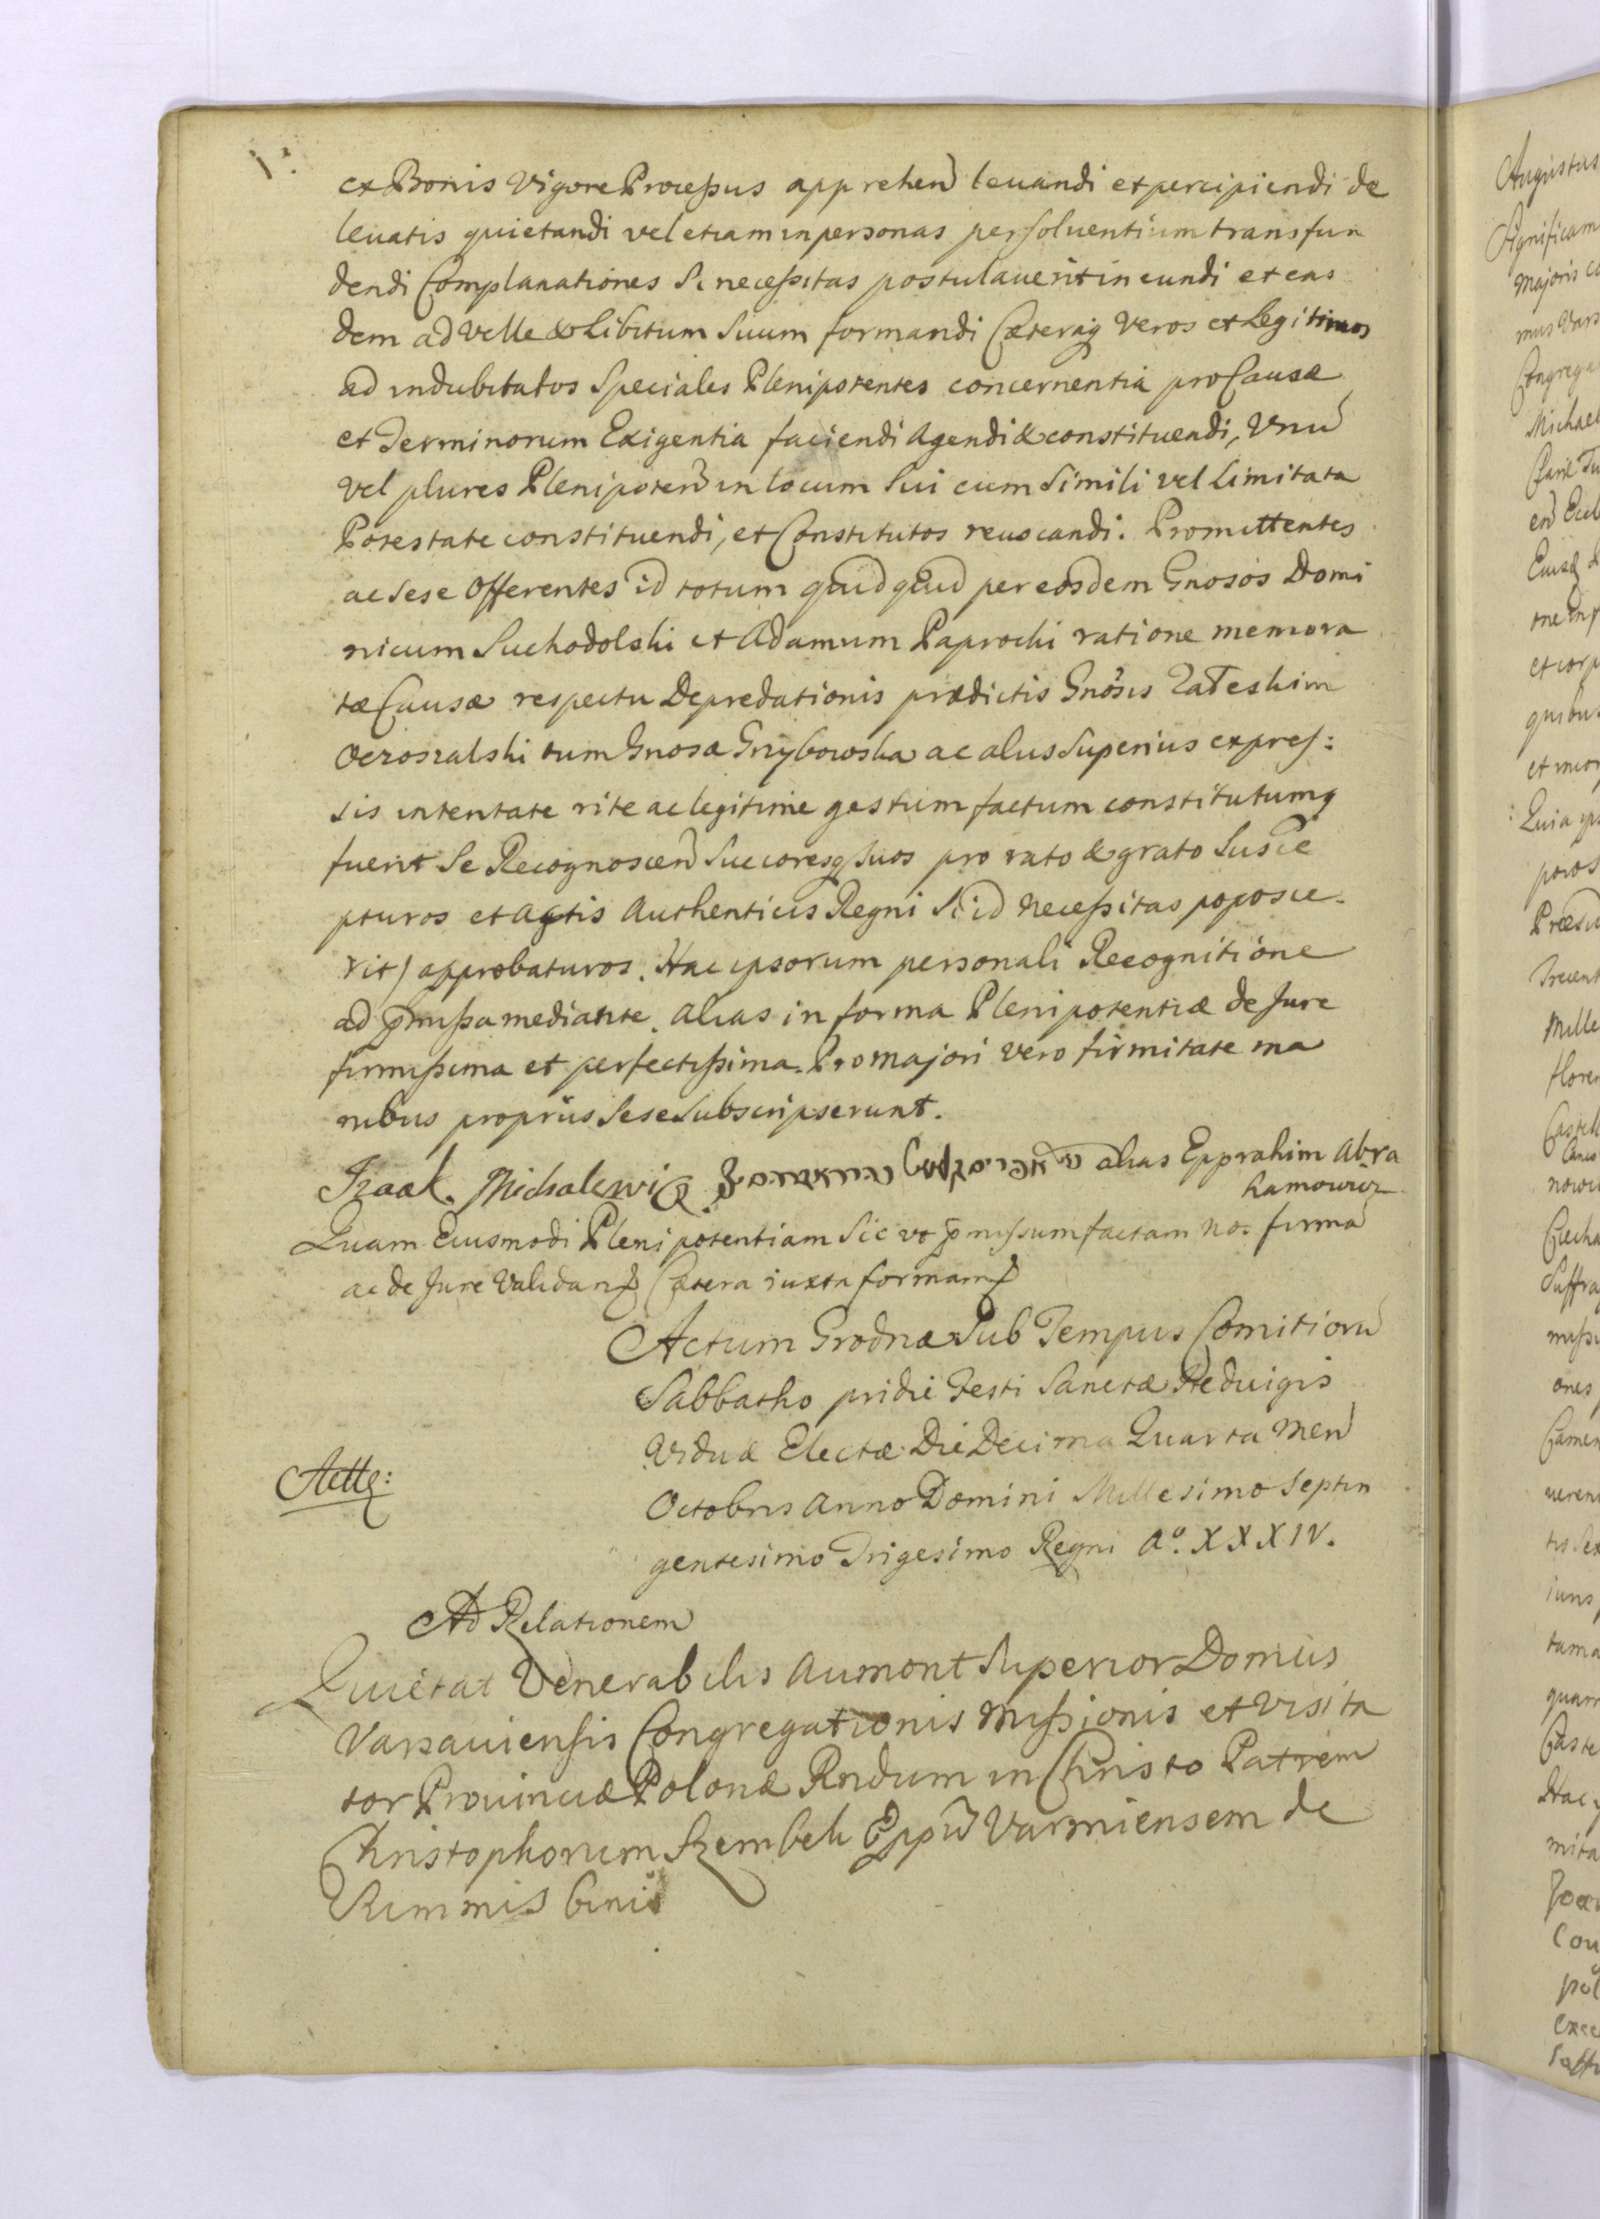 ex Bonis Vigore Processus apprehen levandi et percipiendi de
levatis quietandi vel etiam in personas persoluentium transfun
dendi Complanationes Si necessitas postulaverit in eundi et eas
dem ad Velle & Libitum Suum formandi Cæteraq Veros et Legitimos
ad indubitatos Speciales Plenipotentes concernentia pro Causæ
et Terminorum Exigentia faciendi Agendi & constituendi, Unu
vel plures Plenipoten in locum Sui cum Simili vel Limitata
Potestate constituendi, et Constitutos revocandi. Promittentes
ac Sese Offerentes id totum quidquid per eosdem Gnosos Domi
nicum Suchodolski et Adamum Paprocki ratione memora
tæ Causæ respectu Depredationis prædictis Gnosis
tum Gnosa Grzybowska ac aliis Superius expres:
sis intentatæ rite ac legitime gestum factum constitutumq
fuerit Se Recognoscen Succoresq Suos pro rato & grato Susce
pturos et Actis Authenticis Regni Si id Necessitas poposce
rit) approbaturos. Hac ipsorum personali Recognitione
ad pmissa mediante. alias in forma Plenipotentiæ de Jure
firmissima et perfectissima. Pro majori vero firmitate ma
nibus propriis Sese Subscripserunt.
Izaak Michalewicz alias Epprahim Abra
hamowicz
Quam Eiusmodi Plenipotentiam Sic vt pmissum factam no: firma
ac de Jure Validam Cætera iuxta formam
Actum Grodnæ Sub Tempus Comitioru
Sabbatho pridie Festi Sanctæ Hedvigis
Viduæ Electæ Die Decima Quarta Men
Octobris Anno Domini Millesimo Septin
gentesimo Trigesimo Regni Aº. XXXIV.
Ad Relationem
Quietat Venerabilis Aumont Superior Domus
Varsaviensis Congregationis Missionis et Visita
tor Provinciæ Polonæ Rndum in Christo Patrem
Christophorum Szembek Eppu Varmiensem de
Summis binis